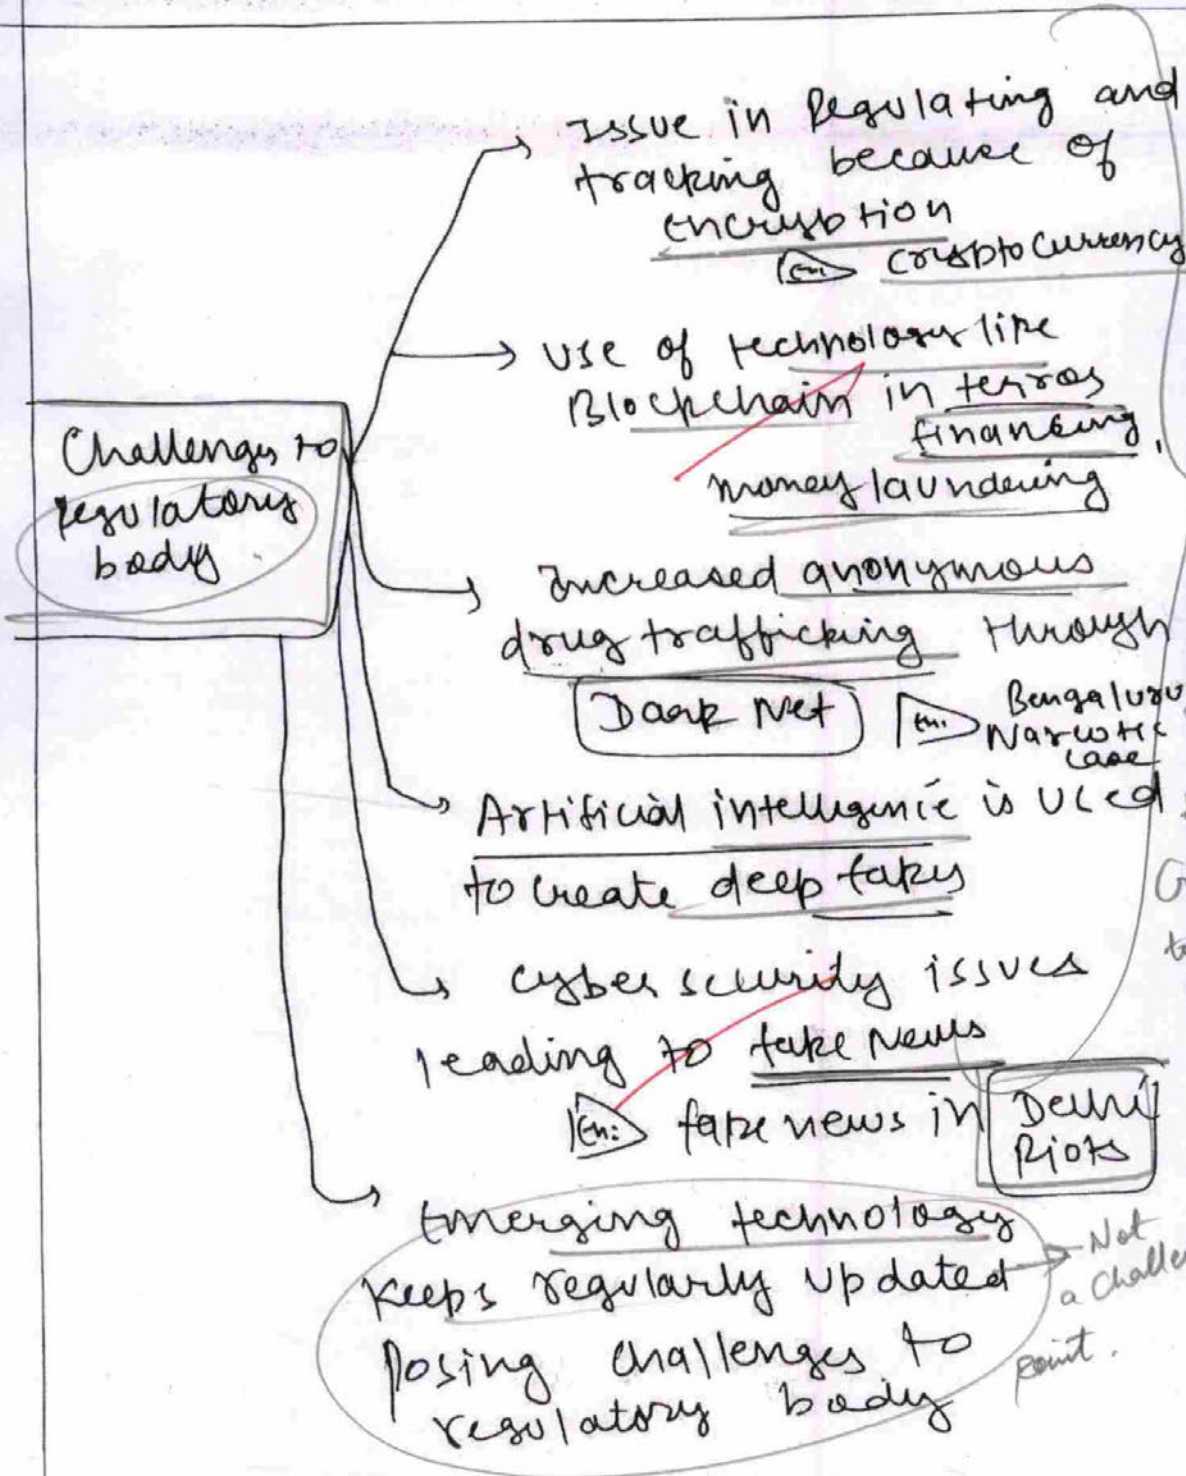 Issue in Regulating and
tracking because of
encryption
Ex: cryptocurrency
Use of technology like
Blockchain in terror
financing,
money laundering
Challenges to
regulatory
body.
Increased anonymous
drug trafficking through
Dark Net
Ex: Bengaluru
Narcotic
case
Artificial intelligence is used
to create deep fakes
Cyber security issues
leading to fake news
Ex: fake news in Delhi
Riots
Emerging technology
keeps regularly updated
posing challenges to
regulatory body
Not
a
point.